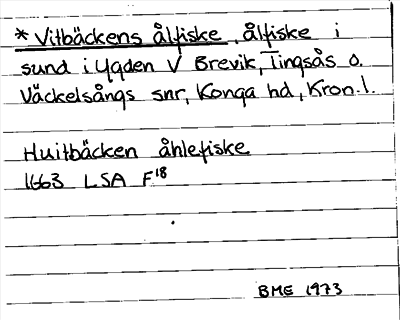 * Vitbäckens ålfiske, ålfiske i
sund i Ygden V Brevik, Tingsås o.
Väckelsångs snr, Konga hd, Kron. l.
Huitbäcken åhlefiske
1663 LSA F18
BME 1973